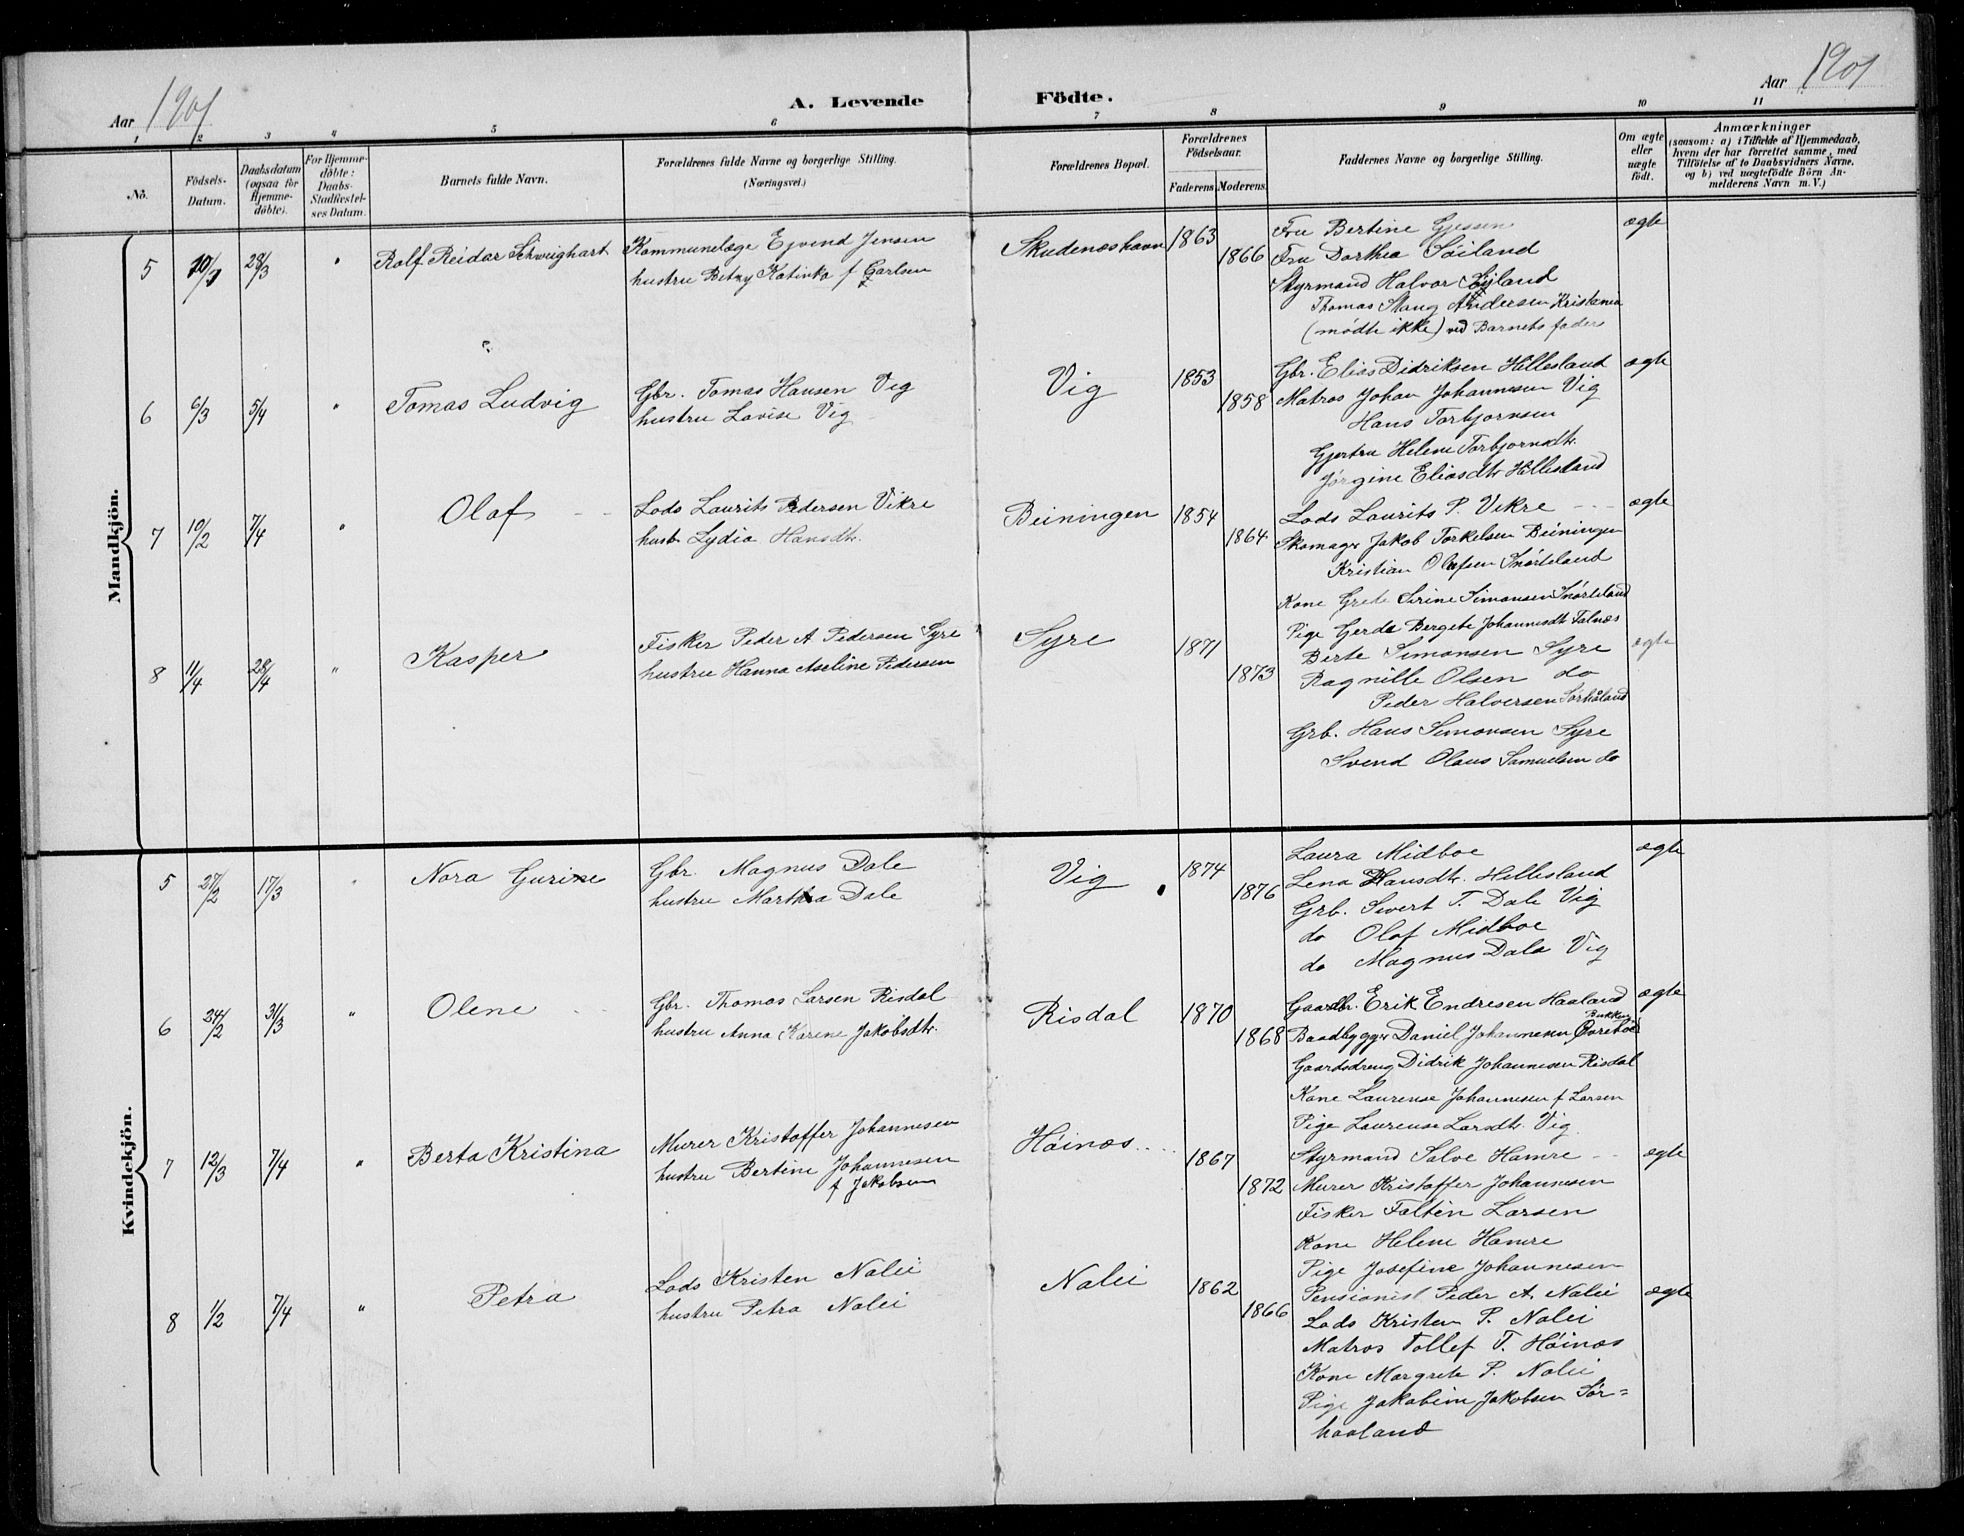 Aar 1901
A. Levende Födte.
Aar 1901
1 2 3 4 5 6 7 8 9 10 11
No.
Födsels-Datum.
Daabsdatum (ogsaa for Hjemme-døbte).
For Hjemme-døbte: Daabs-Stadfæstel-ses Datum.
Barnets fulde Navn.
Forældrenes fulde Navne og borgerlige Stilling. (Næringsvei.)
Forældrenes Bopæl.
Forældrenes Födselsaar.
Faderens Moderens.
Faddernes Navne og borgerlige Stilling.
Om ægte eller uægte født.
Anmærkninger
(saasom: a) i Tilfælde af Hjemmedaab, hvem der har forrettet samme, med Tilföielse af to Daabsvidners Navne, og b) ved uægtefödte Börn An-melderens Navn m. V.)
Mandkjön.
5 28/3 " Rolf Reidar Schweighart
Kommunelæge Ejvend Jensen
hustru Betzy Katinka f Carlsen
Skudeneshavn 1863 1866
Fru Bertine Gjessen
Fru Dorthea Søiland
Styrmand Halvor Søyland
Thomas Stang Andersen Kristania
(mødte ikke) ved Barnets fader
ægte
6 6/3 5/4 " Tomas Ludvig
Gbr. Tomas Hansen Vig
hustru Lovise Vig
Vig 1853 1858
Gbr. Elias Didriksen Hillesland
Matros Johan Johannesen Vig
Hans Torbjornsen
Gjertru Helene Torbjornsdtr.
Jørgine Eliasdtr Hillesland
ægte
7 10/2 7/4 " Olaf
Lods Laurits Pedersen Vikre
hust. Lydia Hansdtr.
Beiningen 1854 1864
Lods Laurits P. Vikre
Skomager Jakob Torkelsen Beiningen
Kristian Olafsen Snørteland
Kone Grete Serine Simonsen Snørteland
Pige Gerda Bergete Johannesdtr Falnæs
ægte
8 11/4 28/4 " Kasper
Fisker Peder A Pedersen Syre
hustru Hanna Aseline Pedersen
Syre 1871 1873
Berte Simonsen Syre
Ragnille Olsen do
Peder Halversen Sørhåland
Grb. Hans Simonsen Syre
Svend Olaus Samuelsen do
ægte
Kvindekjön.
5 27/2 17/3 " Nora Gurine
Gbr. Magnus Dale
hustru Martha Dale
Vig 1874 1876
Laura Midboe
Lena Hansdtr. Hillesland
Grb. Sivert T. Dale Vig
do Olaf Midboe
do Magnus Dale Vig
ægte
6 24/2 31/3 " Olene
Gbr. Thomas Larsen Risdal
hustru Anna Karene Jakobsdtr.
Risdal 1870 1868
Gaardbr. Erik Endresen Haaland
Baadbygger Daniel Johannesen Øvrebø
Gaardsdreng Didrik Johannesen Risdal
Kone Laurense Johannesen f Larsen
Pige Laurense Larsdtr. Vig
ægte
7 12/3 7/4 " Berta Kristina
Murer Kristoffer Johannesen
hustru Bertine Johannesen
f Jakobsen
Høinæs 1867 1872
Styrmand Salve Hamre
Murer Kristoffer Johannesen
Fisker Faltin Larsen
Kone Helene Hamre
Pige Josefine Johannesen
ægte
8 1/2 7/4 " Petra
Lods Kristen Nalei
hustru Petra Nalei
Nalei 1862 1866
Pensionist Peder A. Nalei
Lods Kristen P. Nalei
Matros Tollef T. Høinæs
Kone Margrete P. Nalei
Pige Jakobine Jakobsen Sør-
haaland
ægte